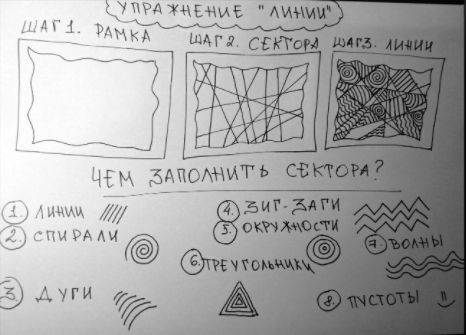 УПРАЖНЕНИЕ "ЛИНИИ"
ШАГ 1. РАМКА
ШАГ 2. СЕКТОРА
ШАГ 3. ЛИНИИ
ЧЕМ ЗАПОЛНИТЬ СЕКТОРА?
1. ЛИНИИ
2. СПИРАЛИ
3. ДУГИ
4. ЗИГ-ЗАГИ
5. ОКРУЖНОСТИ
6. ТРЕУГОЛЬНИКИ
7. ВОЛНЫ
8. ПУСТОТЫ =)